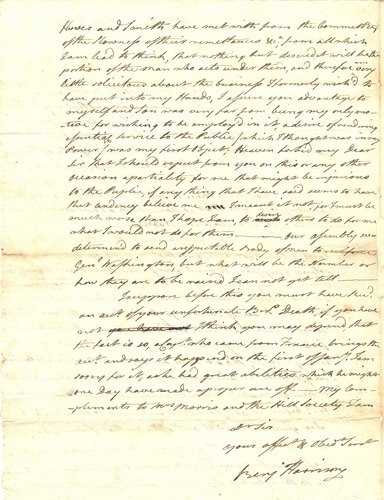 Howes and Smith have met with, from the Committee, by
of the Slowness of their remittances &c. from all which
I am lead to think, that nothing but discredit will be the
portion of the man who acts under them, and therefore very
little solicitous about the business I formerly wish'd to
have put into my Hands, I assure you advantage to
myself and Son was very far from being my only mo-
tive for wishing to be employed in it, a desire of rendering
essential service to the Public, which I thought was in my
Power, was my first object, Heaven forbid my Dear
Sir that I should expect from you on this or any other
occasion a partiality for me that might be injurious
to the Public, if any thing that I have said seems to have
that tendency believe me I meant it not, for I must be
much worse than I hope I am, to desire others to do for me
what I would not do for them — our Assembly have
determined to send a respectable Body of men to reinforce
Genl. Washington, but what will be the Number or
how they are to be raised I can not yet tell —
I suppose before this you must have Recd.
an acct. of your unfortunate Bro's Death, if you have
not you have not I think you may depend that
the fact is so, a Capt. who came from France brings the
acct. and says it happend on the first of Jany. I am
sorry for it, as he had great abilities which he might
one day have made a proper use off — My Com-
pliments to Mrs Morris and the Hill Society I am
Dr Sir
your affect. & Obedt. Servt
Benj Harrison